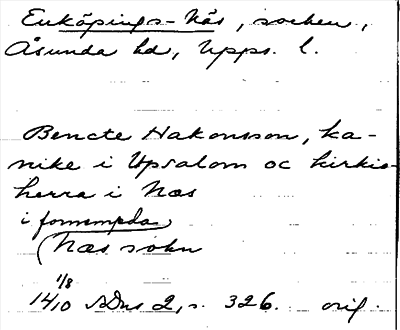 Enköpings-Näs, socken,
Åsunda hd, Upps. l.
Bencte Hakonsson, ka-
nike i Upsalom oc kirkio-
herra i Næs
i fornempda
Næs sokn
1/8
1410 SDns 2, s. 326. orig.